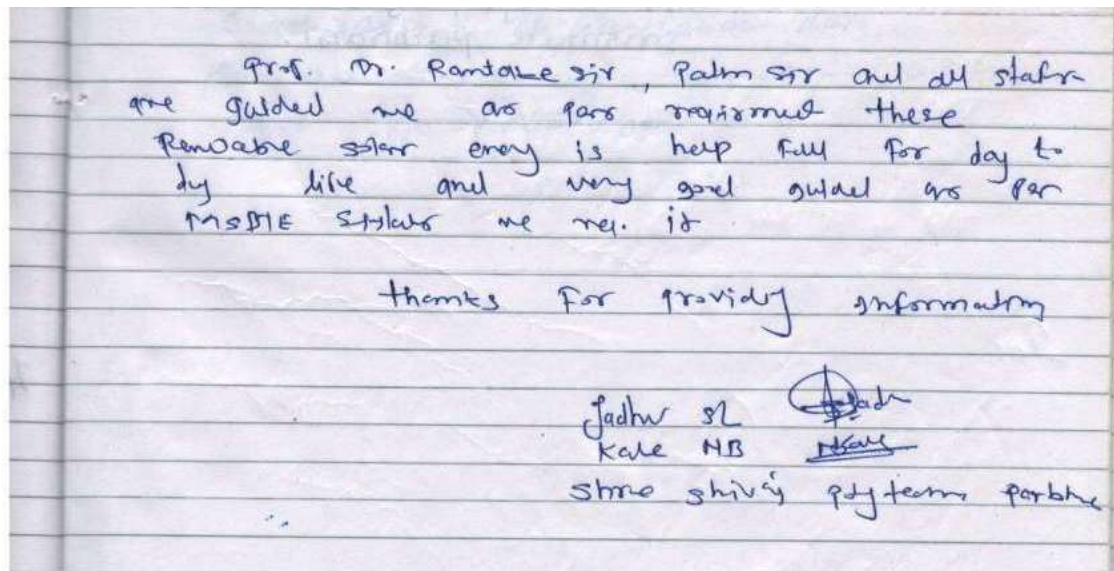 Prof. Dr. Rantake sir, Patm sir and all staff
are guided me as per requirmed these
Renvable solar enery is help full for day to
dy life and very good guided as per
MSBTE Syllabs we req. it
thanks for providing information
Jadhav SL
Kale NB NKale
Shree Shivaji polytecm Parbhni